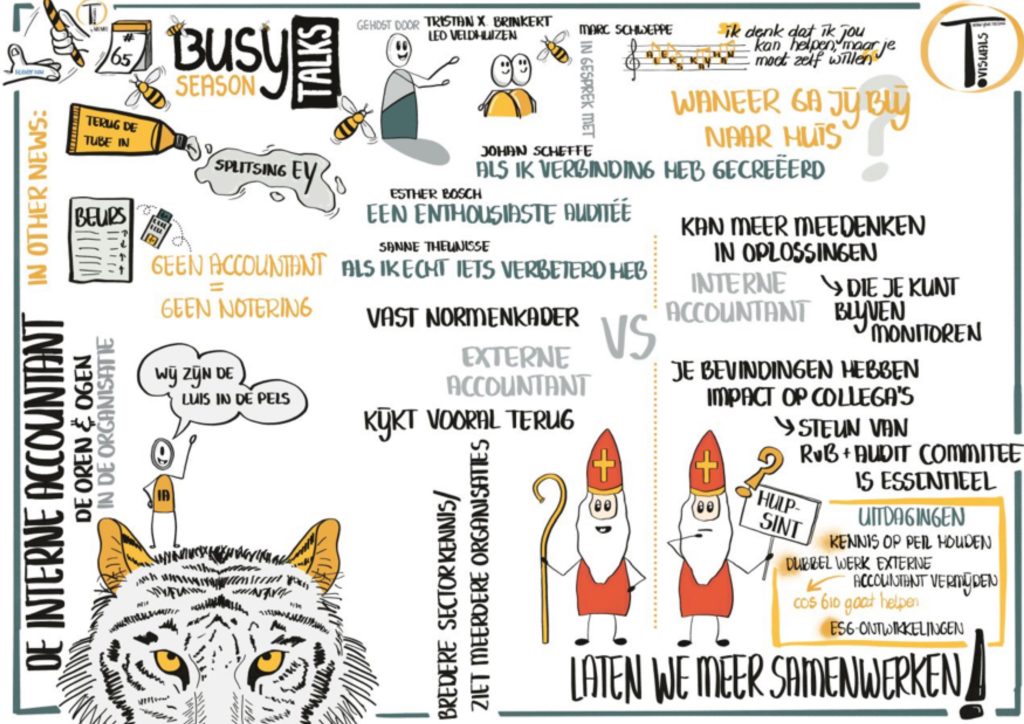 #65
BUSY
SEASON
TALKS
GEHOST DOOR
TRISTAN X. BRINKERT
LEO VELDHUIZEN
IN GESPREK MET
MARC SCHWEPPE
LEKS KAVAN
ik denk dat ik jou
kan helpen, maar je
moet zelf willen
T.
VISUALS
IN OTHER NEWS:
TERUG DE
TUBE IN
SPLITSING EY
WANEER GA JIJ BLIJ
NAAR HUIS
?
JOHAN SCHEFFE
ALS IK VERBINDING HEB GECREËERD
ESTHER BOSCH
EEN ENTHOUSIASTE AUDITÉÉ
SANNE THEUNISSE
ALS IK ECHT IETS VERBETERD HEB
BEURS
GEEN ACCOUNTANT
=
GEEN NOTERING
VAST NORMENKADER
EXTERNE
ACCOUNTANT
KIJKT VOORAL TERUG
BREDERE SECTORKENNIS/
ZIET MEERDERE ORGANISATIES
VS
KAN MEER MEEDENKEN
IN OPLOSSINGEN
INTERNE
ACCOUNTANT
DIE JE KUNT
BLIJVEN
MONITOREN
JE BEVINDINGEN HEBBEN
IMPACT OP COLLEGA'S
STEUN VAN
RvB + AUDIT COMMITEE
IS ESSENTIEEL
DE INTERNE ACCOUNTANT
DE OREN & OGEN
IN DE ORGANISATIE
WIJ ZIJN DE
LUIS IN DE PELS
IA
HULP-
SINT
UITDAGINGEN
KENNIS OP PEIL HOUDEN
DUBBEL WERK EXTERNE
ACCOUNTANT VERMIJDEN
COS 610 gaat helpen
ESG-ONTWIKKELINGEN
LATEN WE MEER SAMENWERKEN!